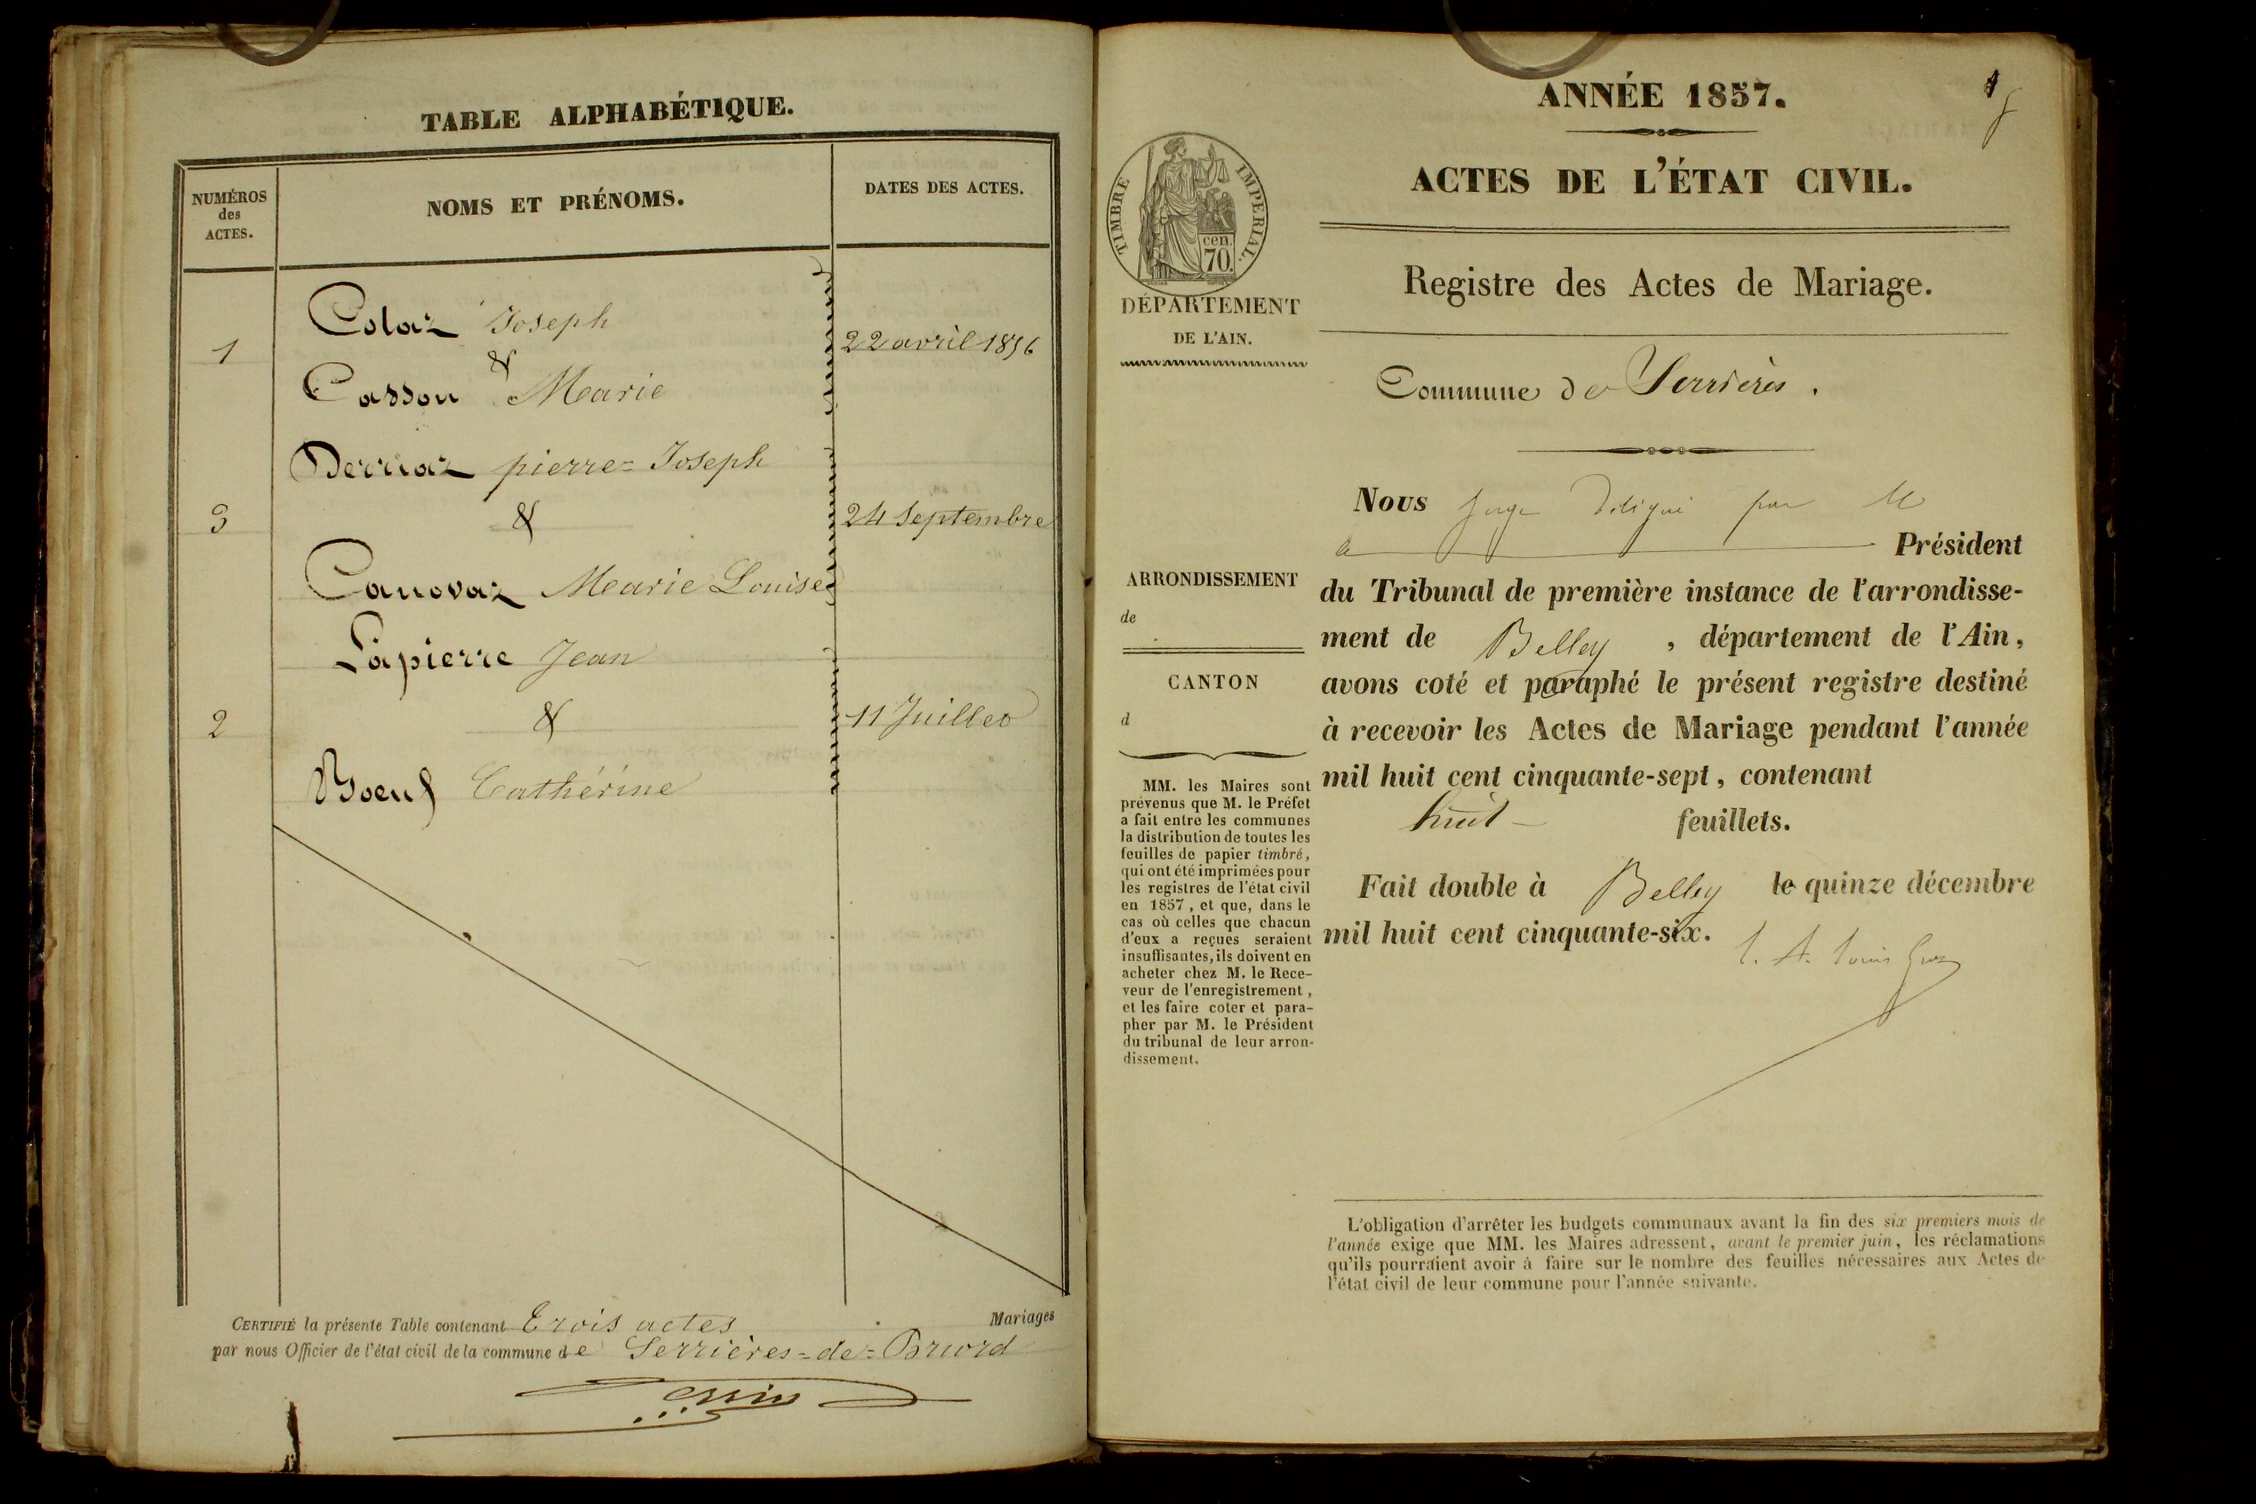 TABLE ALPHABÉTIQUE.
NUMÉROS
des
ACTES.
NOMS ET PRÉNOMS.
DATES DES ACTES.
Colaz Joseph
1 & 22 avril 1856
Casson Marie
Derriaz pierre=Joseph
3 & 24 septembre
Canovaz Marie Louise
Lapierre Jean
2 & 11 Juillet
Boeuf Cathérine
CERTIFIÉ la présente Table contenant Trois actes Mariages
par nous Officier de l'état civil de la commune de Serrières=de=Briord
ANNÉE 1857.
ACTES DE L'ÉTAT CIVIL.
TIMBRE IMPERIAL.
cen.
70.
DÉPARTEMENT
DE L'AIN.
Registre des Actes de Mariage.
Commune de Serrières.
ARRONDISSEMENT
de
CANTON
d
MM. les Maires sont
prévenus que M. le Préfet
a fait entre les communes
la distribution de toutes les
feuilles de papier timbré,
qui ont été imprimées pour
les registres de l'état civil
en 1857, et que, dans le
cas où celles que chacun
d'eux a reçues seraient
insuffisantes, ils doivent en
acheter chez M. le Rece-
veur de l'enregistrement,
et les faire coter et para-
pher par M. le Président
du tribunal de leur arron-
dissement.
Nous juge par M
le Président
du Tribunal de première instance de l'arrondisse-
ment de Belley, département de l'Ain,
avons coté et paraphé le présent registre destiné
à recevoir les Actes de Mariage pendant l'année
mil huit cent cinquante-sept, contenant
huit feuillets.
Fait double à Belley le quinze décembre
mil huit cent cinquante-six.
L'obligation d'arrêter les budgets communaux avant la fin des six premiers mois de
l'année exige que MM. les Maires adressent, avant le premier juin, les réclamations
qu'ils pourraient avoir à faire sur le nombre des feuilles nécessaires aux Actes de
l'état civil de leur commune pour l'année suivante.